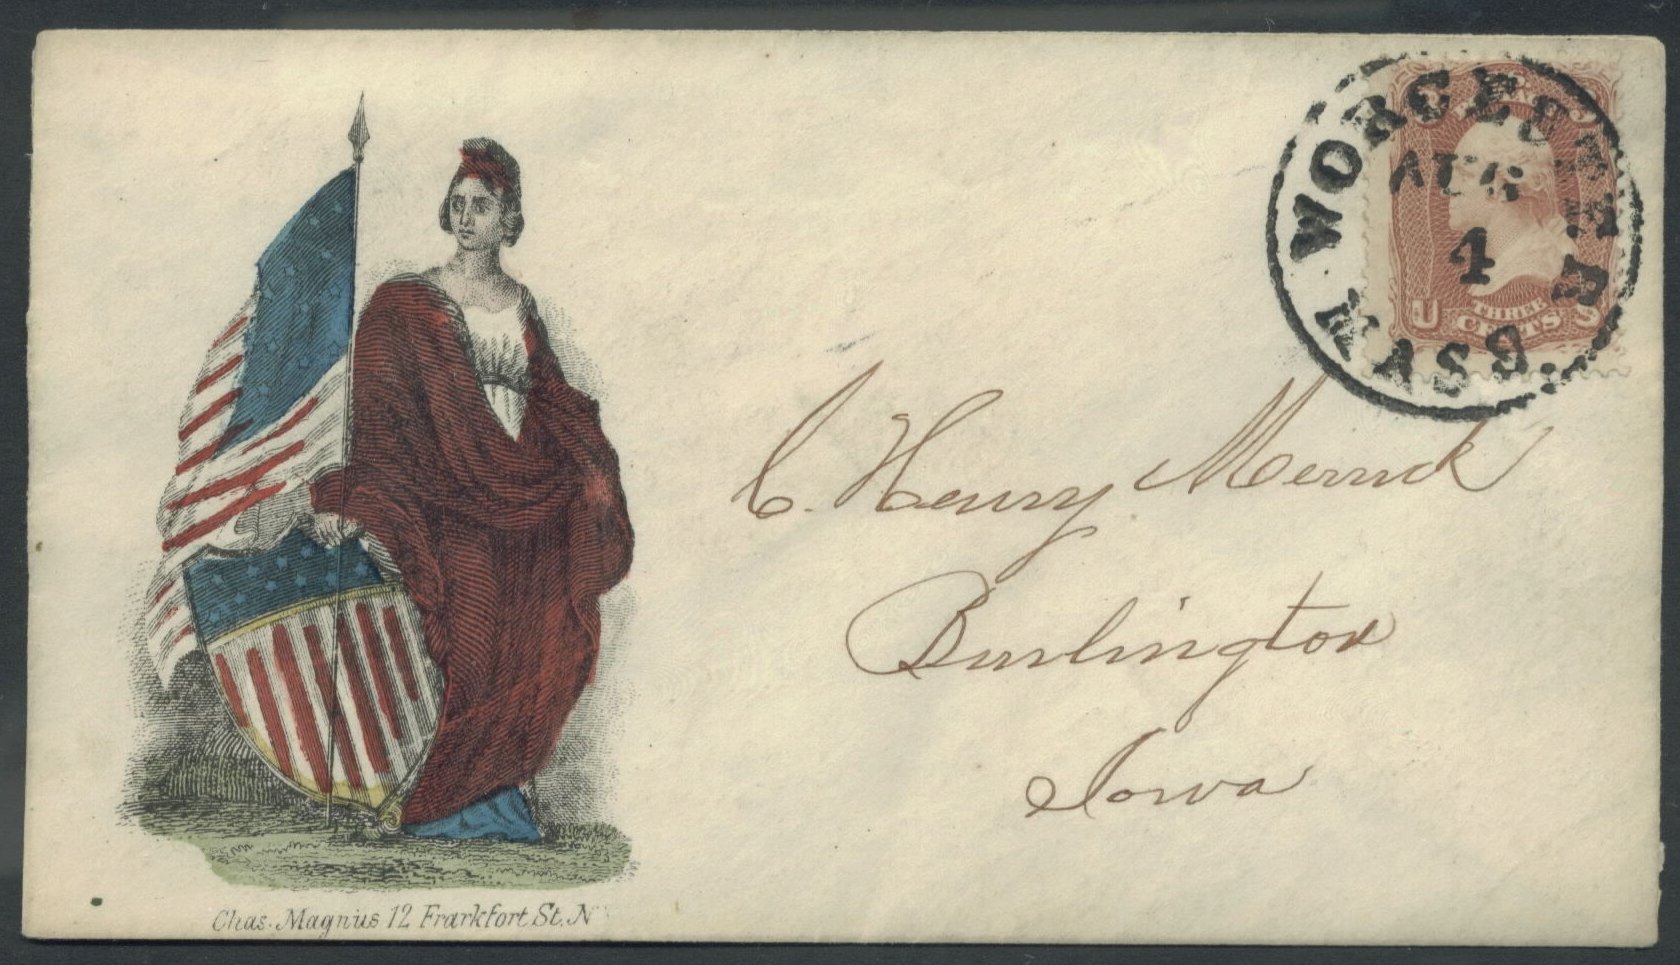 WORCESTER
AUG
4
MASS.
U THREE S
CENTS
C. Henry Merrick
Burlington
Iowa
Chas. Magnus 12 Frankfort St. N